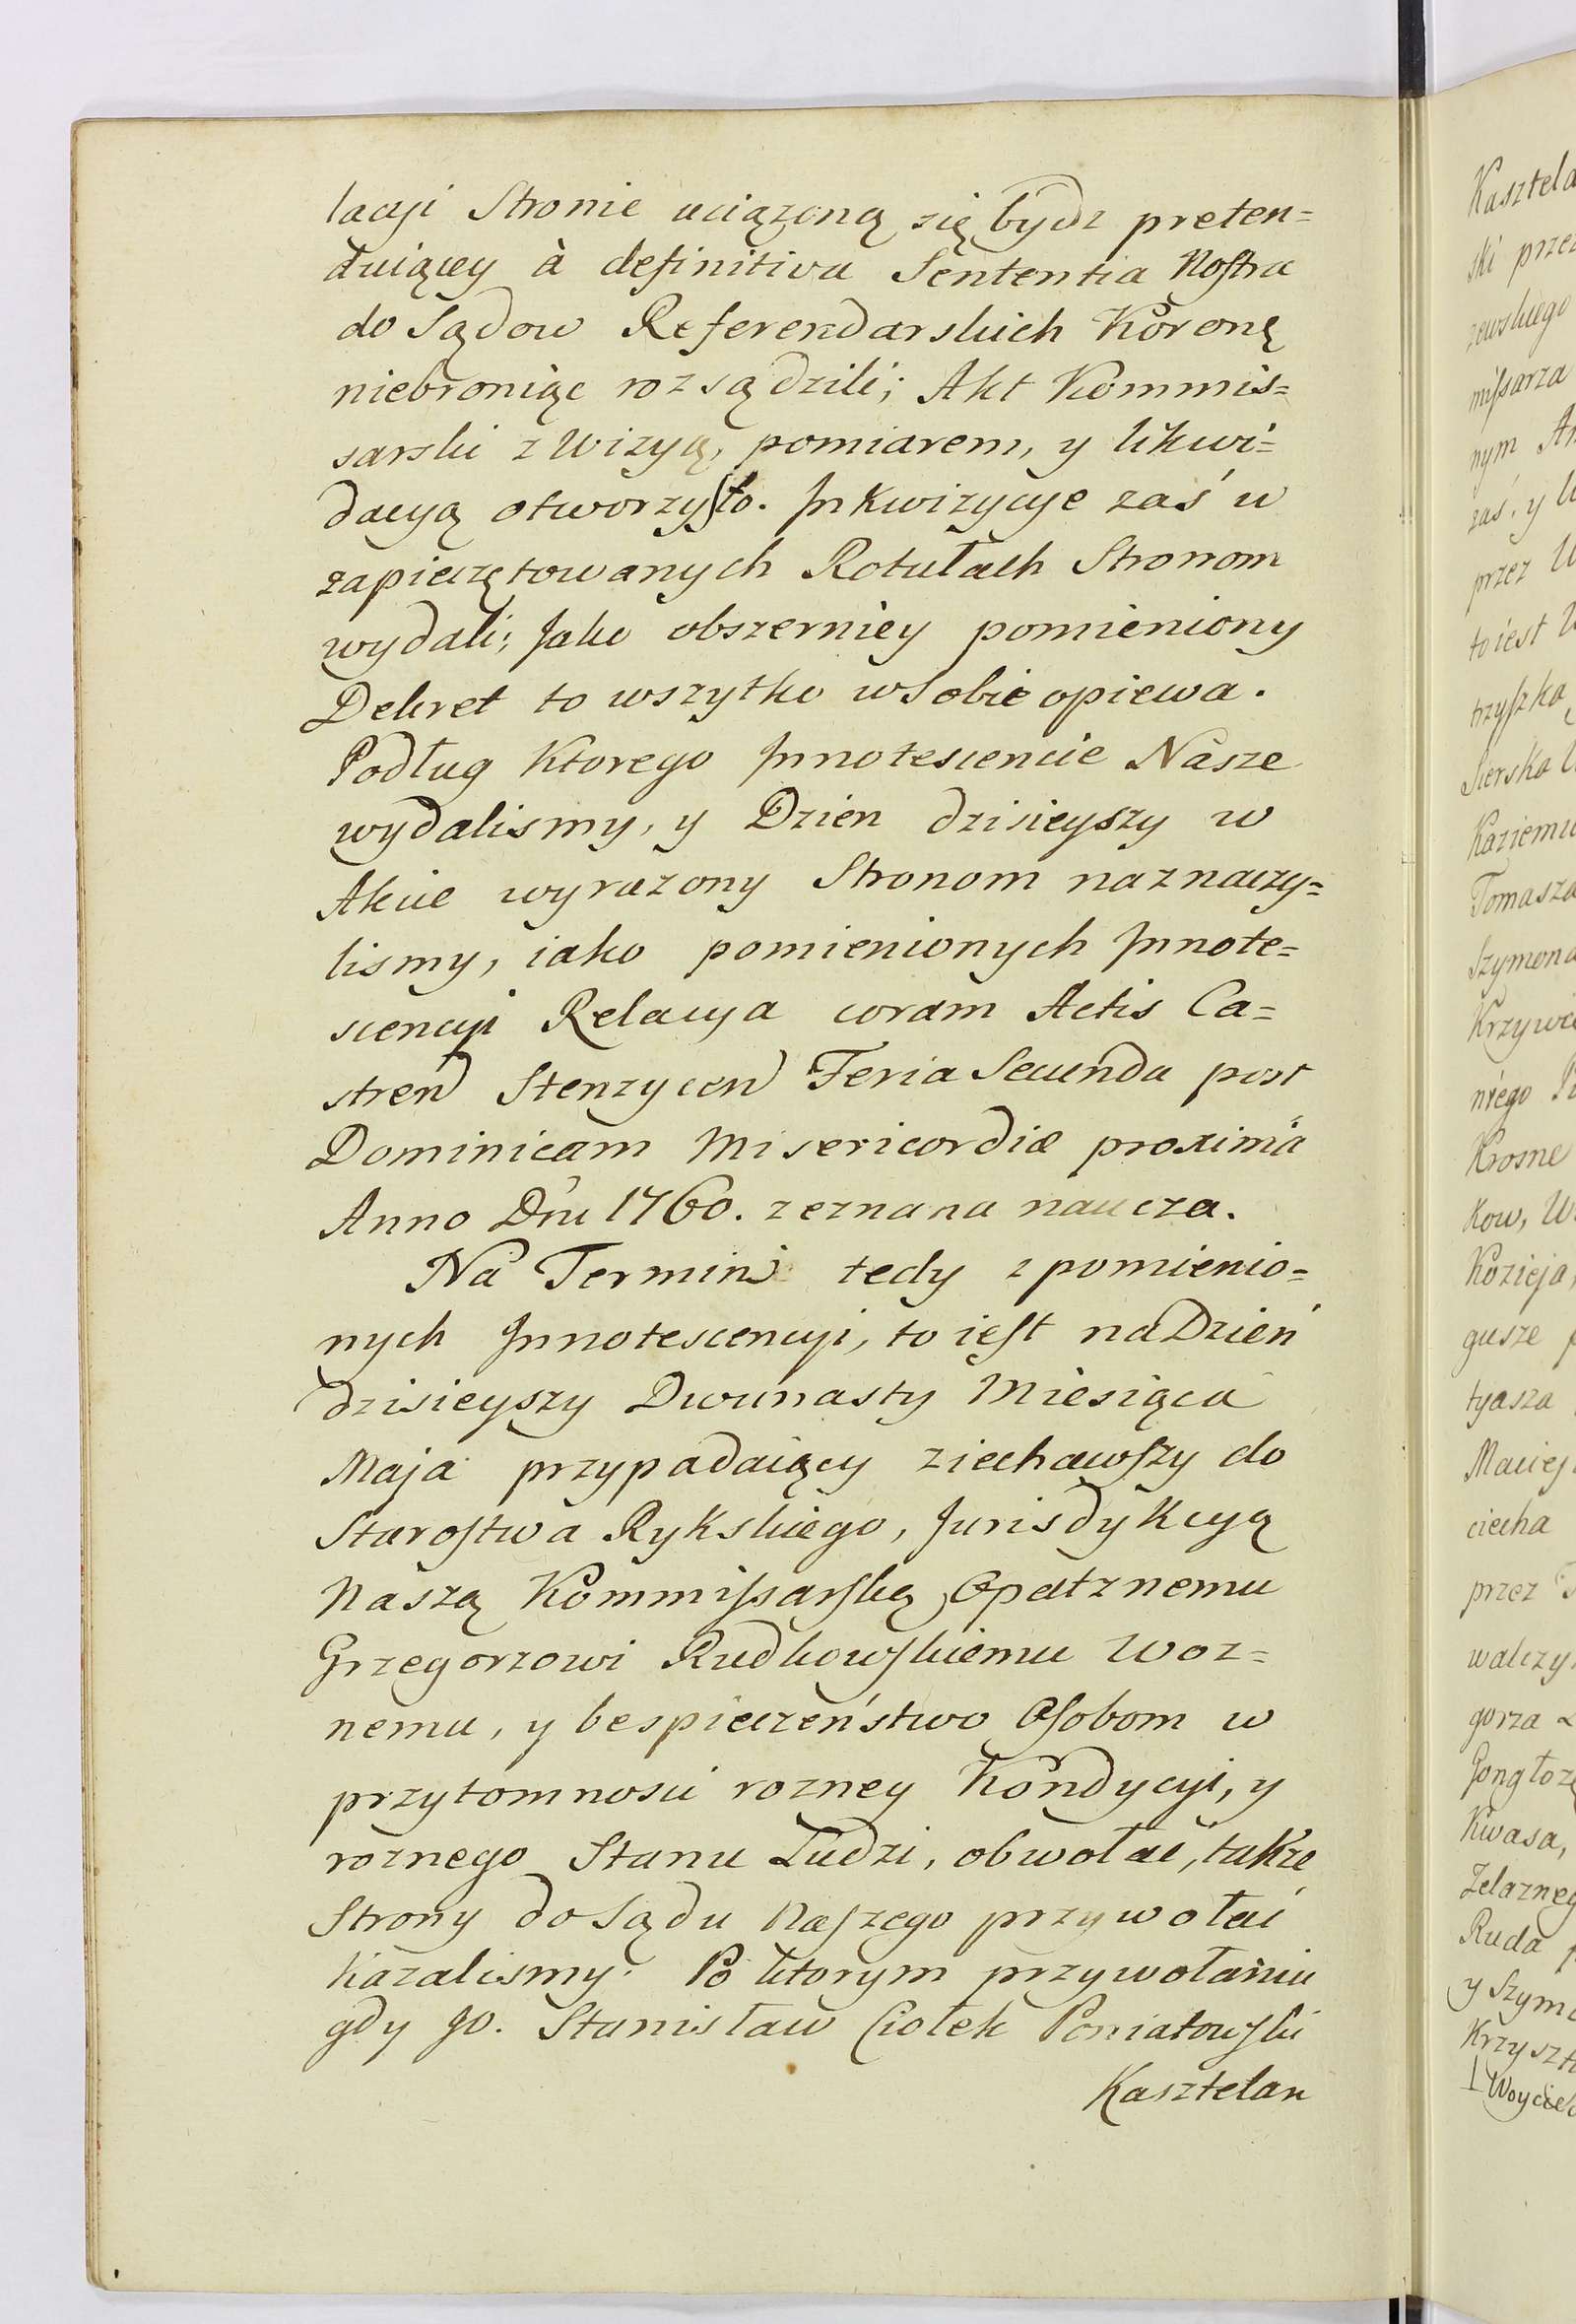 lacyi Stronie uciązoną się bydz preten=
duiącey à definitiva Sententia Nostra
do Sądow Referendarskich Koronę
niebroniąc rozsądzili; Akt Kommis=
sarski z Wizyą, pomiarem, y likwi=
dacyą otworzysto. Inkwizycye zaś w
zapieczętowanych Rotułach Stronom
wydali; Jako obszerniey pomieniony
Dekret to wszytko w Sobie opiewa.
Podług Ktorego Innotescencie Nasze
wydalismy, y Dzien dzisieyszy w
Akcie wyrazony Stronom naznaczy=
lismy, iako pomienionych Innote=
scencyi Relacya coram Actis Ca=
stren Stenzycen Feria Secunda post
Dominicam Misericordiæ proxima
Anno Dni 1760. zeznana naucza.
Na Termin tedy z pomienio=
nych Innotescencyi, to iest na Dzień
dzisieyszy Dwunasty Miesiąca
Maja przypadaiący ziechawszy do
Starostwa Rykskiego, Jurisdykcyą
Naszą Kommissarską Opatznemu
Grzegorzowi Rudkowskiemu Woz=
nemu, y bespieczeństwo Osobom w
przytomnosci rozney Kondycyi, y
roznego Stanu Ludzi, obwołać, takze
Strony do Sądu Naszego przywołać
kazalismy. Po ktorym przywołaniu
gdy JO. Stanisław Ciołek Poniatowski
Kasztelan
Kasztela
ski prze
zewskiego
missarza
nym
zaś, y
przez
to iest
trzyszka
Sierska
Kaziemi
Tomasza
Szymona
Krzywi
niego
Krosne
kow,
Kozieja,
gusze
tyasza
Maciej
ciecha
przez
walczy
gorza
Gongłoz
Kwasa,
Zelazneg
Ruda
y Szym
Krzyszt
Woycie